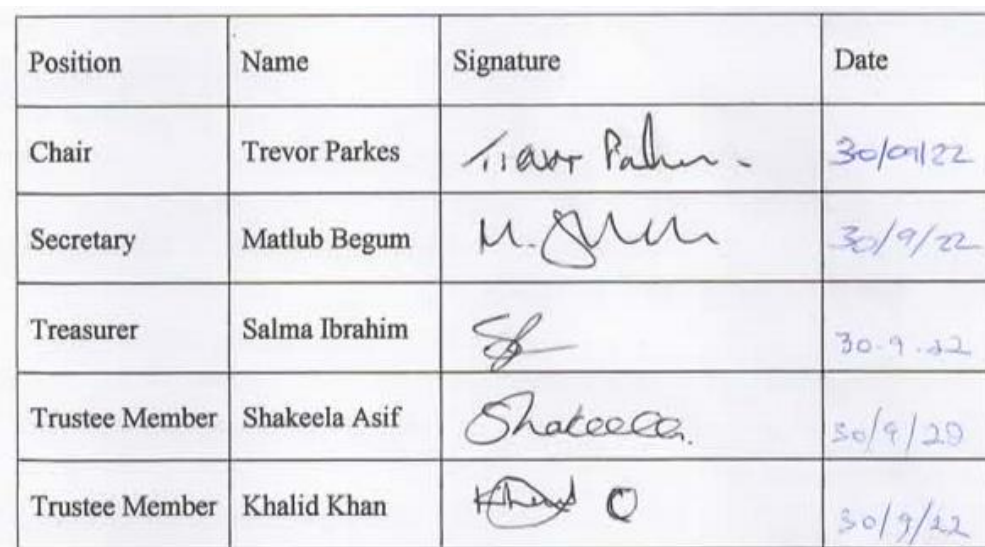 Position Name Signature Date
Chair Trevor Parkes Trevor Parkes 30/09/22
Secretary Matlub Begum M. 30/9/22
Treasurer Salma Ibrahim 30.9.22
Trustee Member Shakeela Asif Shakeela. 30/9/20
Trustee Member Khalid Khan Khalid 30/9/22